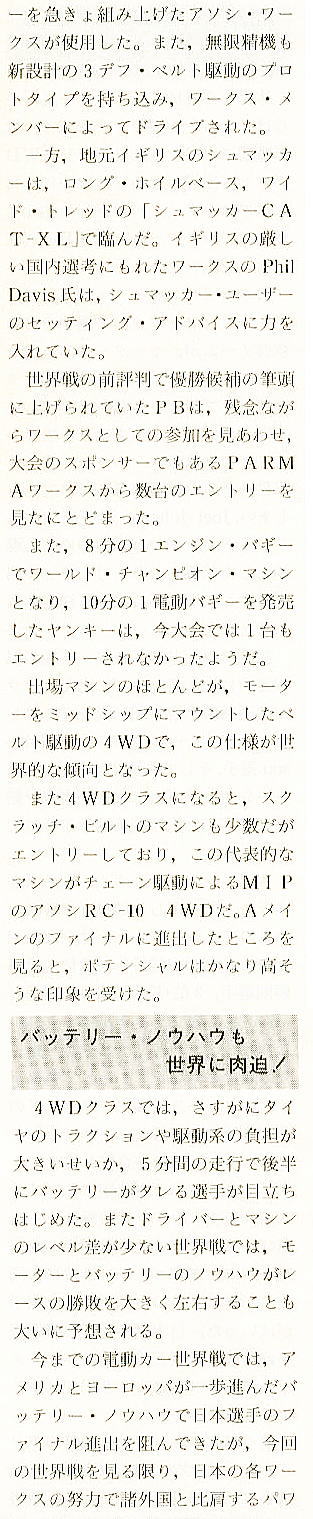 ーを急きょ組み上げたアソシ・ワー
クスが使用した。また，無限精機も
新設計の3デフ・ベルト駆動のプロ
トタイプを持ち込み，ワークス・メ
ンバーによってドライブされた。
一方，地元イギリスのシュマッカ
ーは，ロング・ホイルベース，ワイ
ド・トレッドの「シュマッカーCA
T-XL」で臨んだ。イギリスの厳し
い国内選考にもれたワークスのPhil
Davis氏は，シュマッカー・ユーザー
のセッティング・アドバイスに力を
入れていた。
世界戦の前評判で優勝候補の筆頭
に上げられていたPBは，残念なが
らワークスとしての参加を見あわせ，
大会のスポンサーでもあるPARM
Aワークスから数台のエントリーを
見たにとどまった。
また，8分の1エンジン・バギー
でワールド・チャンピオン・マシン
となり，10分の1電動バギーを発売
したヤンキーは，今大会では1台も
エントリーされなかったようだ。
出場マシンのほとんどが，モータ
ーをミッドシップにマウントしたベ
ルト駆動の4WDで，この仕様が世
界的な傾向となった。
また4WDクラスになると，スク
ラッチ・ビルトのマシンも少数だが
エントリーしており，この代表的な
マシンがチェーン駆動によるMIP
のアソシRC-10 4WDだ。Aメイ
ンのファイナルに進出したところを
見ると，ポテンシャルはかなり高そ
うな印象を受けた。
バッテリー・ノウハウも
世界に肉迫！
4WDクラスでは，さすがにタイ
ヤのトラクションや駆動系の負担が
大きいせいか，5分間の走行で後半
にバッテリーがタレる選手が目立ち
はじめた。またドライバーとマシン
のレベル差が少ない世界戦では，モ
ーターとバッテリーのノウハウがレ
ースの勝敗を大きく左右することも
大いに予想される。
今までの電動カー世界戦では，ア
メリカとヨーロッパが一歩進んだバ
ッテリー・ノウハウで日本選手のフ
ァイナル進出を阻んできたが，今回
の世界戦を見る限り，日本の各ワー
クスの努力で諸外国と比肩するパワ